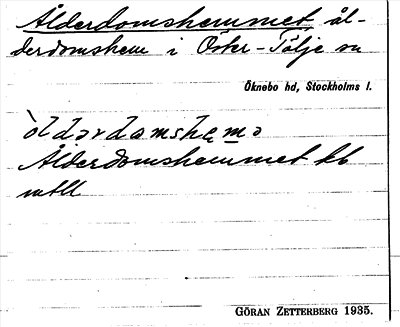 Ålderdomshemmet ål-
derdomshem i Öster-Tälje sn
Öknebo hd, Stockholms l.
Ålderdomshemmet kb
GÖRAN ZETTERBERG 1935.